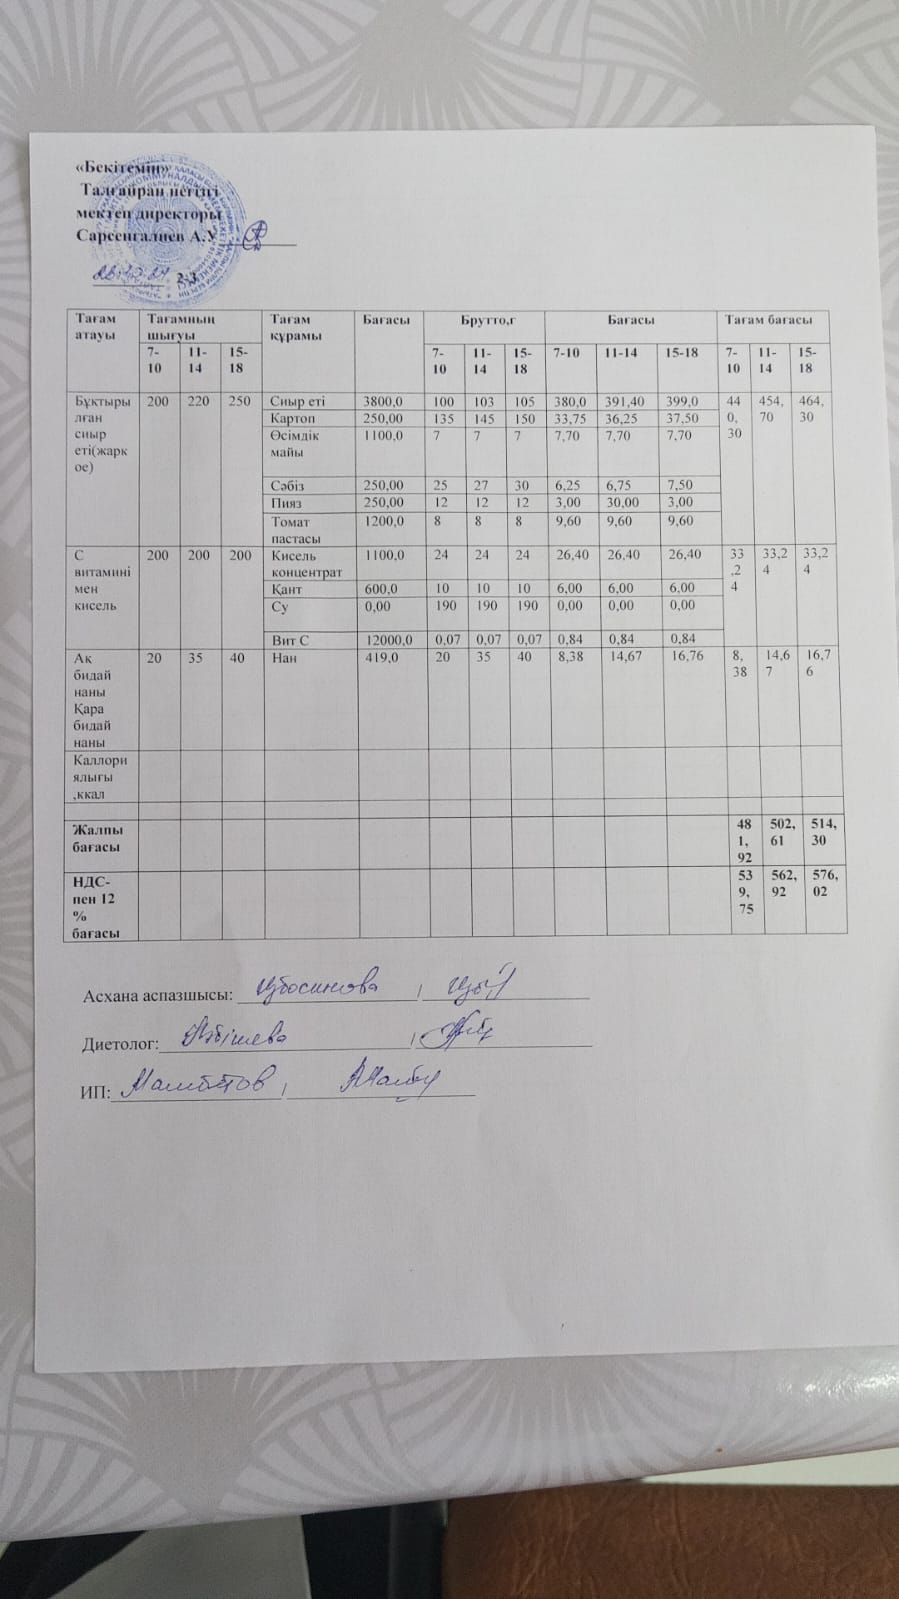 «Бекітемін»
Талғайран негізгі
мектеп директоры
Сарсенгалиев А.У.
Тағам атауы | Тағамның шығуы | Тағам құрамы | Бағасы | Брутто,г | Бағасы | Тағам бағасы
7-10 | 11-14 | 15-18 | 7-10 | 11-14 | 15-18 | 7-10 | 11-14 | 15-18 | 7-10 | 11-14 | 15-18
Бұктырылған сиыр еті(жаркое) | 200 | 220 | 250 | Сиыр еті | 3800,0 | 100 | 103 | 105 | 380,0 | 391,40 | 399,0 | 440,30 | 454,70 | 464,30
Картоп | 250,00 | 135 | 145 | 150 | 33,75 | 36,25 | 37,50
Өсімдік майы | 1100,0 | 7 | 7 | 7 | 7,70 | 7,70 | 7,70
Сәбіз | 250,00 | 25 | 27 | 30 | 6,25 | 6,75 | 7,50
Пияз | 250,00 | 12 | 12 | 12 | 3,00 | 30,00 | 3,00
Томат пастасы | 1200,0 | 8 | 8 | 8 | 9,60 | 9,60 | 9,60
С витаминімен кисель | 200 | 200 | 200 | Кисель концентрат | 1100,0 | 24 | 24 | 24 | 26,40 | 26,40 | 26,40 | 33,24 | 33,24 | 33,24
Қант | 600,0 | 10 | 10 | 10 | 6,00 | 6,00 | 6,00
Су | 0,00 | 190 | 190 | 190 | 0,00 | 0,00 | 0,00
Вит С | 12000,0 | 0,07 | 0,07 | 0,07 | 0,84 | 0,84 | 0,84
Ак бидай наны Қара бидай наны | 20 | 35 | 40 | Нан | 419,0 | 20 | 35 | 40 | 8,38 | 14,67 | 16,76 | 8,38 | 14,67 | 16,76
Каллориялығы ,ккал
Жалпы бағасы | 481,92 | 502,61 | 514,30
НДС-пен 12 % бағасы | 539,75 | 562,92 | 576,02
Асхана аспазшысы:
Диетолог:
ИП: